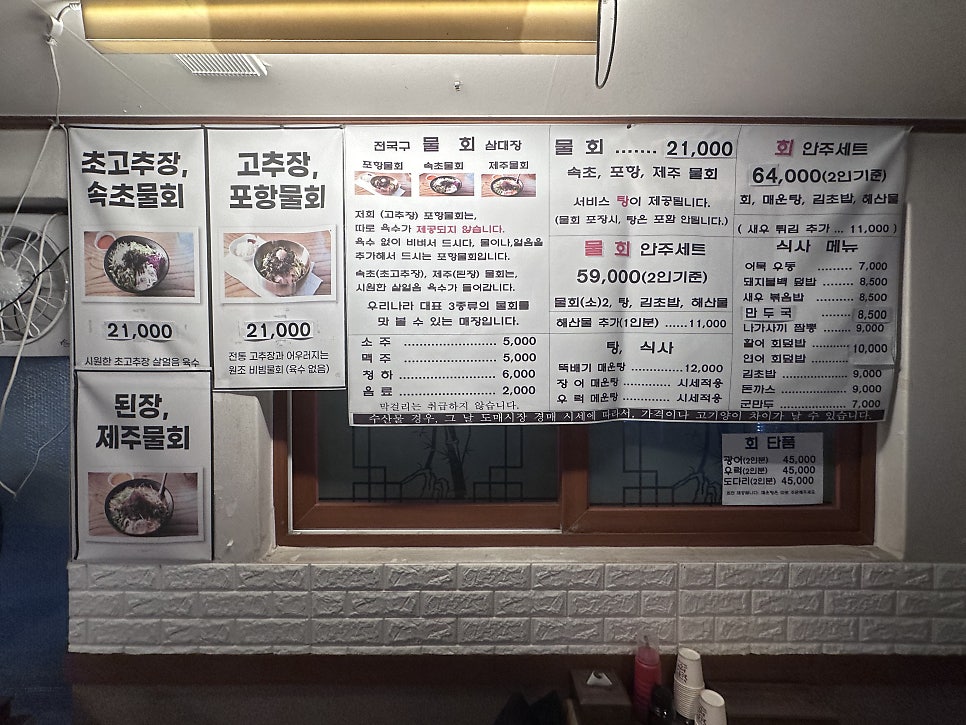 초고추장,
속초물회
21,000
시원한 초고추장 살얼음 육수
고추장,
포항물회
21,000
전통 고추장과 어우러지는
원조 비빔물회 (육수 없음)
된장,
제주물회
전국구 물 회 삼대장
포항물회 속초물회 제주물회
저희 (고추장) 포항물회는,
따로 육수가 제공되지 않습니다.
육수 없이 비벼서 드시다, 물이나,얼음을
추가해서 드시는 포항물회입니다.
속초(초고추장), 제주(된장) 물회는,
시원한 살얼음 육수가 들어갑니다.
우리나라 대표 3종류의 물회를
맛 볼 수 있는 매장입니다.
소 주 ........ 5,000
맥 주 ........ 5,000
청 하 ........ 6,000
음 료 ........ 2,000
막걸리는 취급하지 않습니다.
물 회 ....... 21,000
속초, 포항, 제주 물회
서비스 탕이 제공됩니다.
(물회 포장시, 탕은 포함 안됩니다.)
물 회 안주세트
59,000(2인기준)
물회(소)2, 탕, 김초밥, 해산물
해산물 추가(1인분) ......11,000
탕, 식사
뚝배기 매운탕 ........ 12,000
장 어 매운탕 ........ 시세적용
우 럭 매운탕 ........ 시세적용
회 안주세트
64,000(2인기준)
회, 매운탕, 김초밥, 해산물
( 새우 튀김 추가 ... 11,000 )
식사 메뉴
어묵 우동 ........ 7,000
돼지불백 덮밥 ........ 8,500
새우 볶음밥 ........ 8,500
만 두 국 ........ 8,500
나가사끼 짬뽕 ........ 9,000
활어 회덮밥 ........ 10,000
연어 회덮밥 ........
김초밥 ........ 9,000
돈까스 ........ 9,000
군만두 ........ 7,000
수산물 경우, 그 날 도매시장 경매 시세에 따라서, 가격이나 고기양이 차이가 날 수 있습니다.
회 단품
광어(2인분) 45,000
우럭(2인분) 45,000
도다리(2인분) 45,000